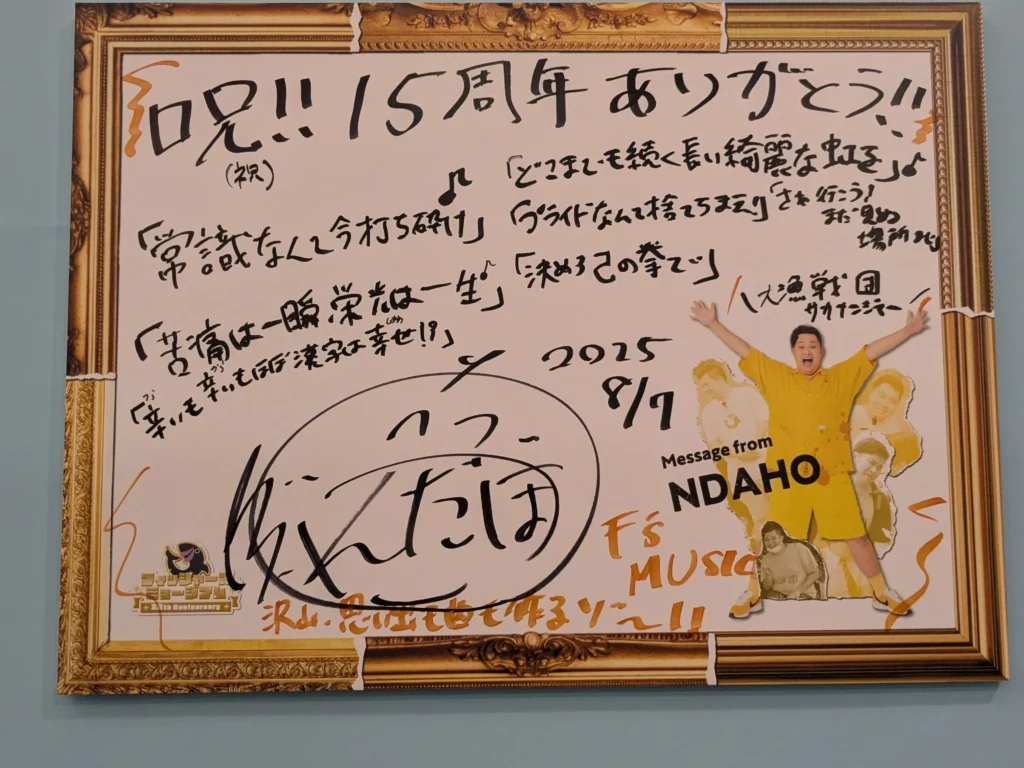 呪!! 15周年 ありがとう!!
(祝)
「どこまでも続く長い綺麗な虹を」♪
「常識なんて今打ち砕け」♪
「プライドなんて捨てちまえ」
「さあ行こう!
まだ見ぬ
場所まで」
「苦痛は一瞬 栄光は一生」♪
「決めろ己の拳で」
「辛いも辛いもほぼ漢字は幸せ!?」
\大漁戦団
サカナンジャー/
2025
8/7
んだほ
Message from
NDAHO
F's
MUSIC
フィッシャーズ
ミュージアム
15th Anniversary
沢山、思い出も曲も作るゾ〜!!